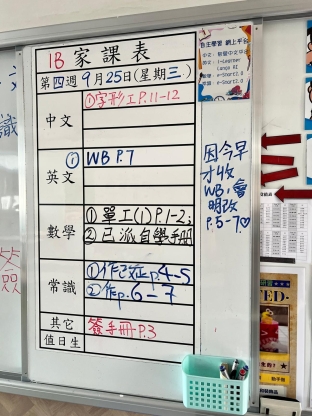 1B 家課表
第四週 9月25日(星期三)
中文
①字形工P.11-12
英文
① WB P.7
數學
①單工(1)P.1-2;
②已派自學手冊
常識
①作改正p.4-5
②作p.6-7
其它
簽手冊P.3
值日生
因今早
才收
WB,會
明改
p.5-7♡
自主學習 網上平台